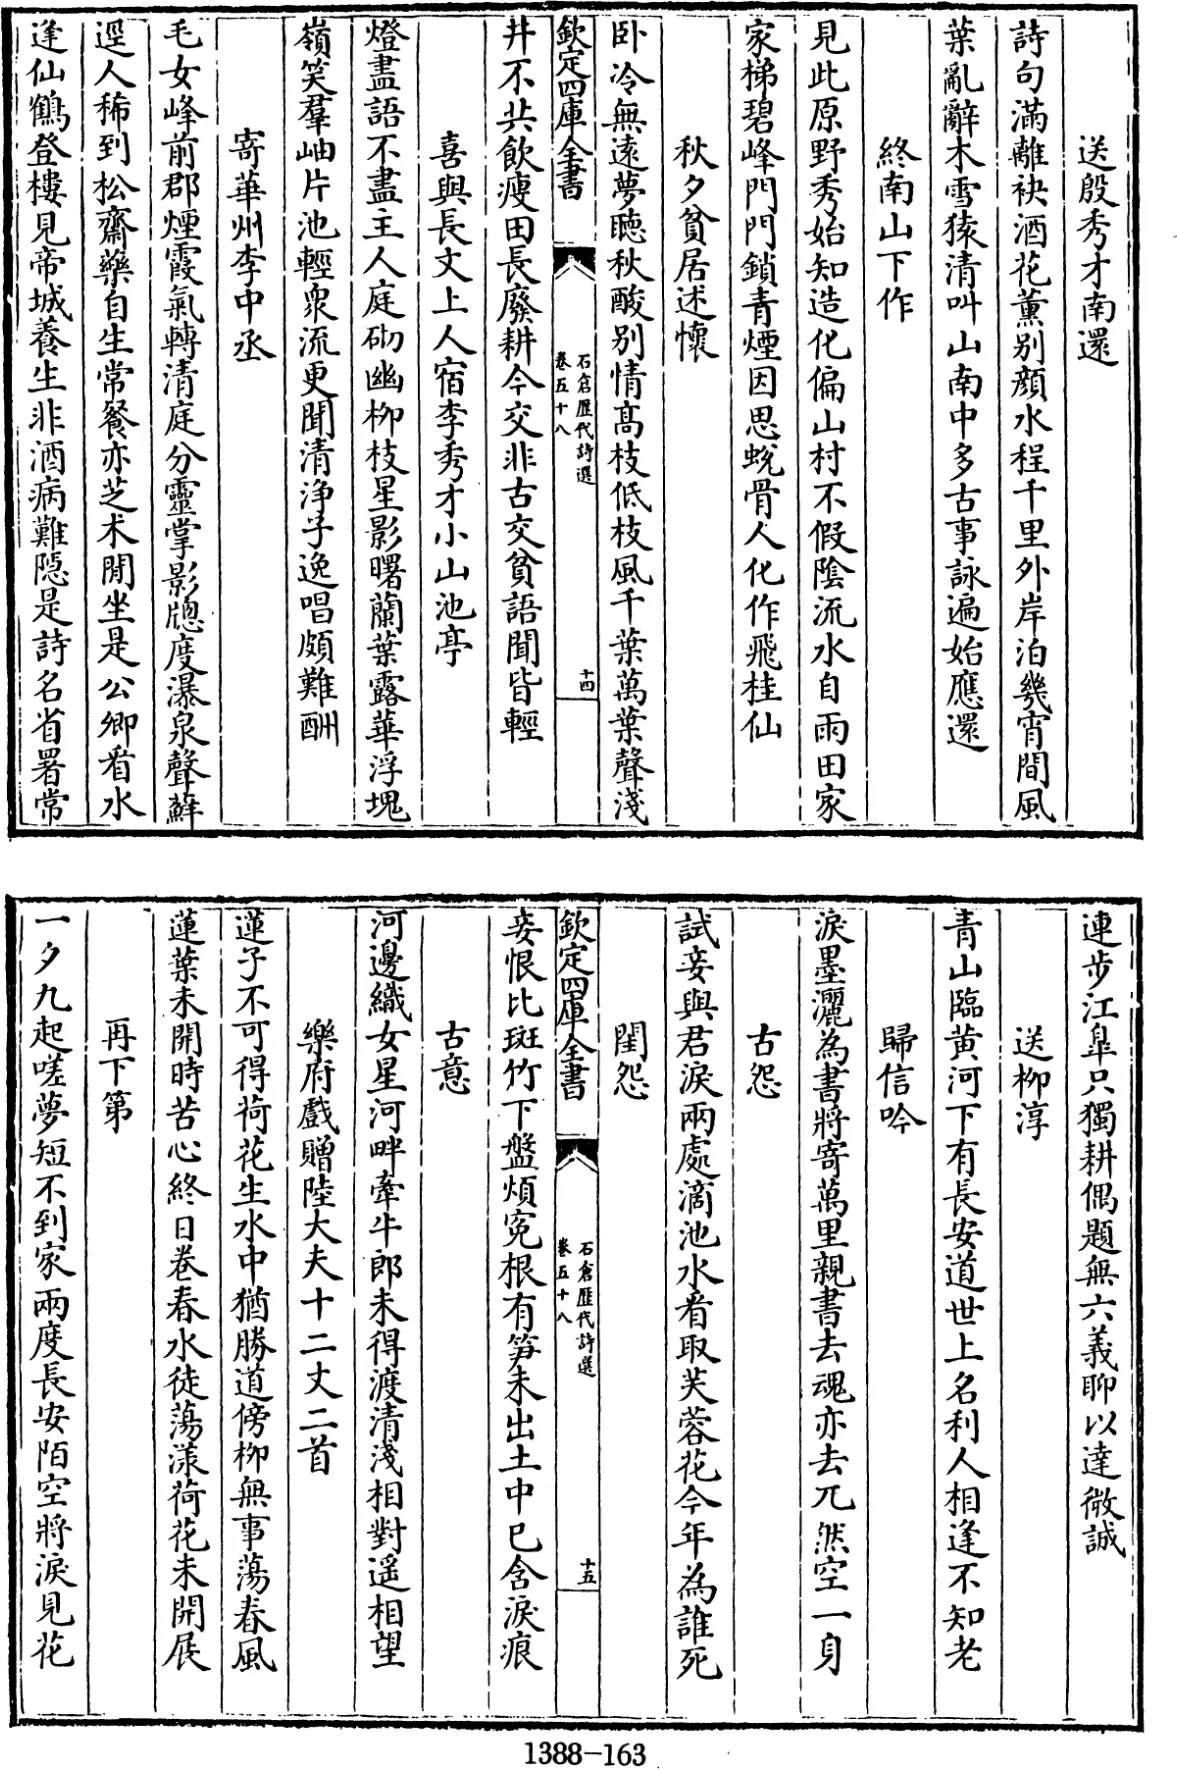 送殷秀才南還
詩句滿離袂酒花薰别顔水程千里外岸泊幾宵間風
葉亂辭木雪猿清叫山南中多古事詠遍始應還
終南山下作
見此原野秀始知造化偏山村不假隂流水自雨田家
家梯碧峰門門鎖青煙因思蛻骨人化作飛桂仙
秋夕貧居述懷
卧冷無遠夢聽秋酸别情高枝低枝風千葉萬葉聲淺
欽定四庫全書
石倉歷代詩選
卷五十八
十四
井不共飲瘦田長廢耕今交非古交貧語聞皆輕
喜與長文上人宿李秀才小山池亭
燈盡語不盡主人庭砌幽柳枝星影曙蘭葉露華浮塊
嶺笑羣岫片池輕衆流更聞清浄子逸唱頗難酬
寄華州李中丞
毛女峰前郡煙霞氣轉清庭分靈掌影牕度瀑泉聲蘚
逕人稀到松齋藥自生常餐亦芝术閒坐是公卿看水
逢仙鶴登樓見帝城養生非酒病難隠是詩名省署常
連步江臯只獨耕偶題無六義聊以達微誠
送柳淳
青山臨黄河下有長安道世上名利人相逢不知老
歸信吟
淚墨灑為書將寄萬里親書去魂亦去兀然空一身
古怨
試妾與君淚兩處滴池水看取芙蓉花今年為誰死
閨怨
欽定四庫全書
石倉歷代詩選
卷五十八
十五
妾恨比斑竹下盤煩寃根有笋未出土中已含淚痕
古意
河邊織女星河畔牽牛郎未得渡清淺相對遥相望
樂府戲贈陸大夫十二丈二首
蓮子不可得荷花生水中猶勝道傍柳無事蕩春風
蓮葉未開時苦心終日卷春水徒蕩漾荷花未開展
再下第
一夕九起嗟夢短不到家兩度長安陌空將淚見花
1388-163